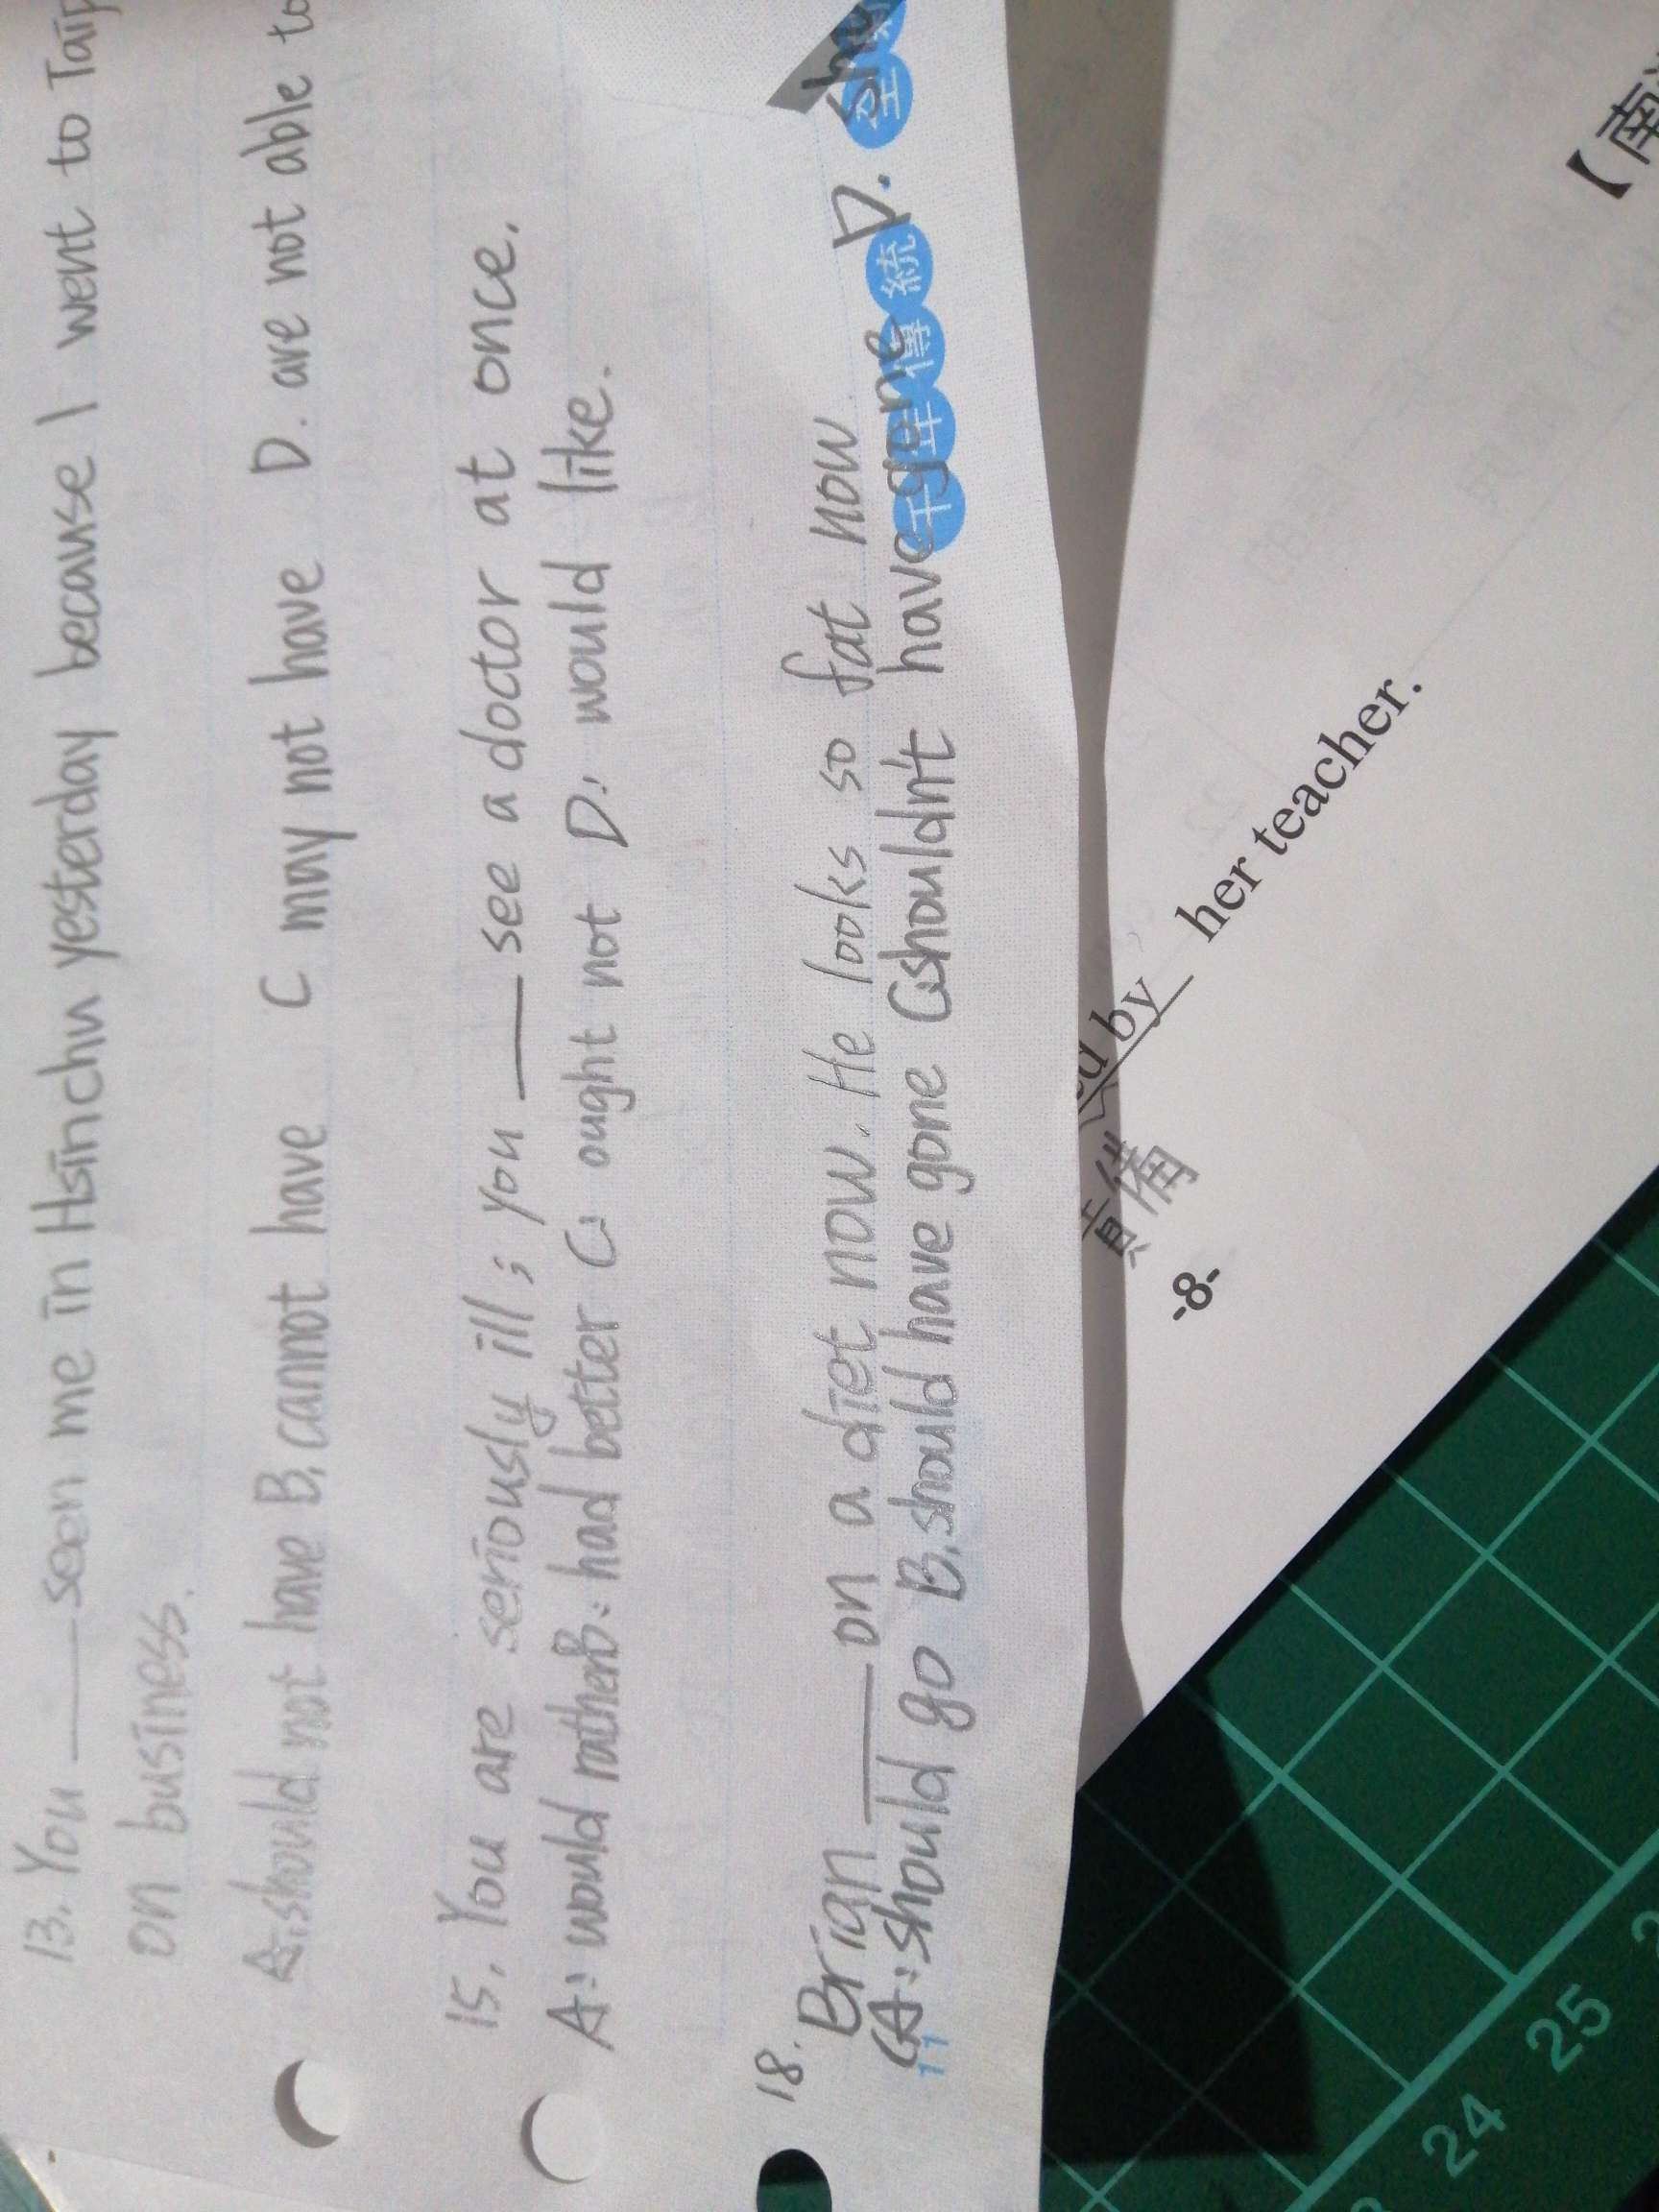 13. You ____ seen me in Hsinchu yesterday because I went to
on business.
A. should not have B. cannot have C may not have D. are not able to
15. You are seriously ill; you ____ see a doctor at once.
A: would rather B: had better C: ought not D: would like.
18. Brian ____ on a diet now. He looks so fat now
(A: should go B. should have gone C. shouldn't have gone D.
11
傳 統
by her teacher.
責備
-8-
【南
24
25